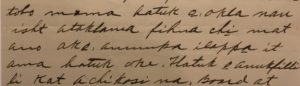 tobo mama hatuk a. okla nan
isht ataklama fihna chi mat
ano ake. anumpa ilappa it
ama hatuk oke. Hatuk
li kat achikosi na. Board at